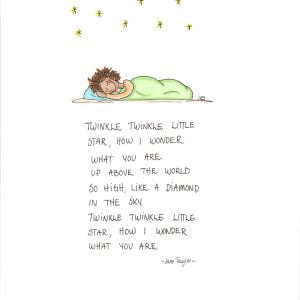 TWINKLE TWINKLE LITTLE
STAR, HOW I WONDER
WHAT YOU ARE.
UP ABOVE THE WORLD
SO HIGH, LIKE A DIAMOND
IN THE SKY
TWINKLE TWINKLE LITTLE
STAR, HOW I WONDER
WHAT YOU ARE
~Jane Taylor~